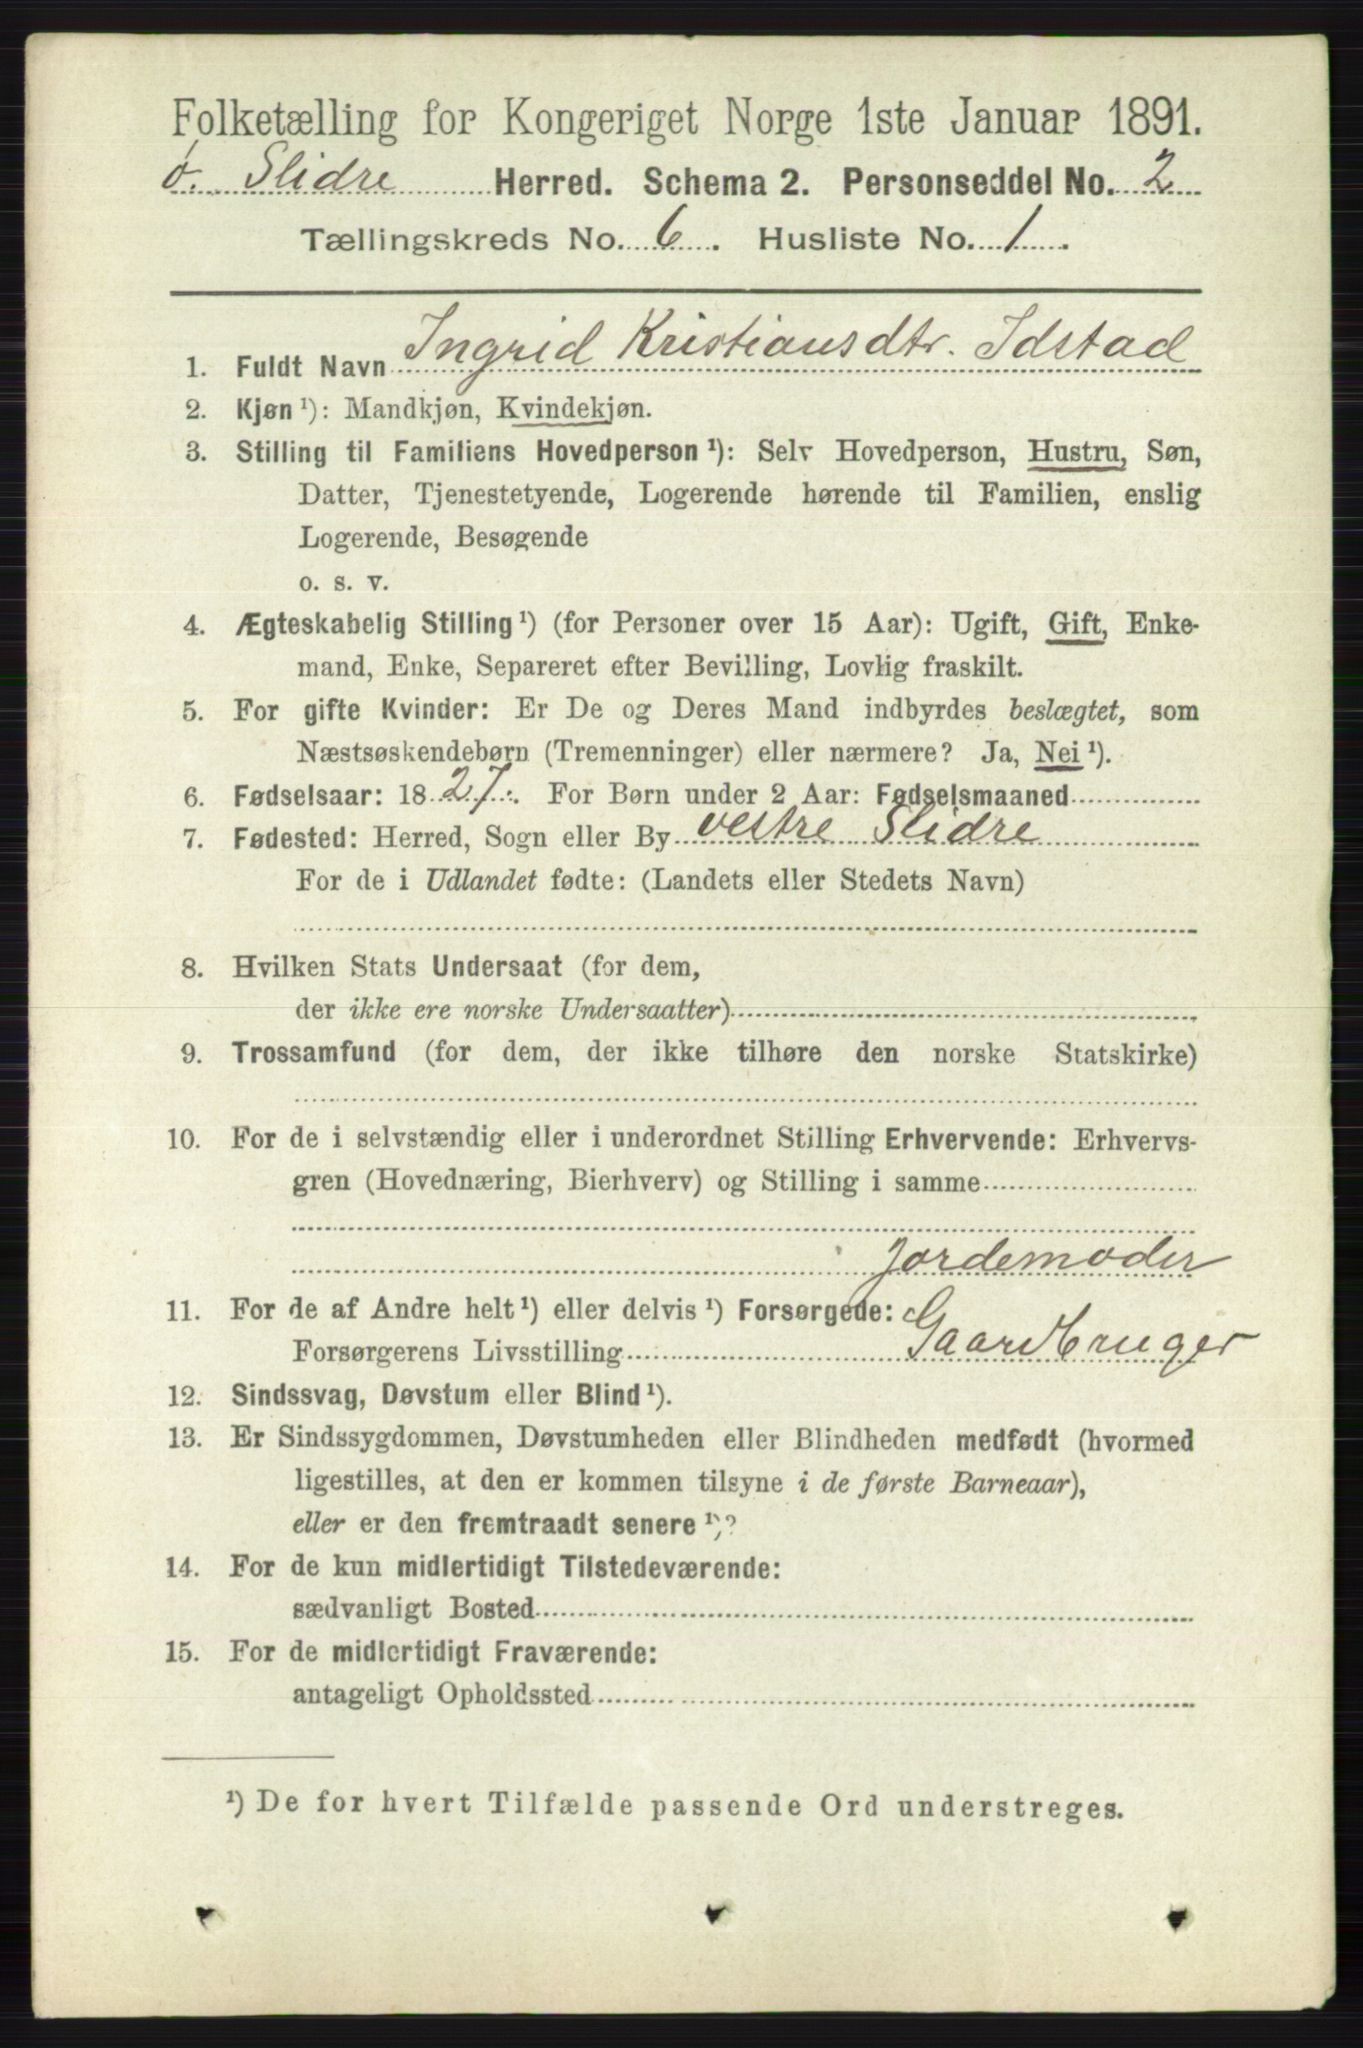 Folketælling for Kongeriget Norge 1ste Januar 1891.
ø. Slidre Herred. Schema 2. Personseddel No. 2
Tællingskreds No. 6. Husliste No. 1.
1. Fuldt Navn Ingrid Kristiansdtr. Idstad
2. Kjøn ¹): Mandkjøn, Kvindekjøn.
3. Stilling til Familiens Hovedperson ¹): Selv Hovedperson, Hustru, Søn,
Datter, Tjenestetyende, Logerende hørende til Familien, enslig
Logerende, Besøgende
o. s. v.
4. Ægteskabelig Stilling ¹) (for Personer over 15 Aar): Ugift, Gift, Enke-
mand, Enke, Separeret efter Bevilling, Lovlig fraskilt.
5. For gifte Kvinder: Er De og Deres Mand indbyrdes beslægtet, som
Næstsøskendebørn (Tremenninger) eller nærmere? Ja, Nei ¹).
6. Fødselsaar: 1827. For Børn under 2 Aar: Fødselsmaaned
7. Fødested: Herred, Sogn eller By vestre Slidre
For de i Udlandet fødte: (Landets eller Stedets Navn)
8. Hvilken Stats Undersaat (for dem,
der ikke ere norske Undersaatter)
9. Trossamfund (for dem, der ikke tilhøre den norske Statskirke)
10. For de i selvstændig eller i underordnet Stilling Erhvervende: Erhvervs-
gren (Hovednæring, Bierhverv) og Stilling i samme
Jordemoder
11. For de af Andre helt ¹) eller delvis ¹) Forsørgede:
Forsørgerens Livsstilling Gaardbruger
12. Sindssvag, Døvstum eller Blind ¹).
13. Er Sindssygdommen, Døvstumheden eller Blindheden medfødt (hvormed
ligestilles, at den er kommen tilsyne i de første Barneaar),
eller er den fremtraadt senere ¹)?
14. For de kun midlertidigt Tilstedeværende:
sædvanligt Bosted
15. For de midlertidigt Fraværende:
antageligt Opholdssted
¹) De for hvert Tilfælde passende Ord understreges.